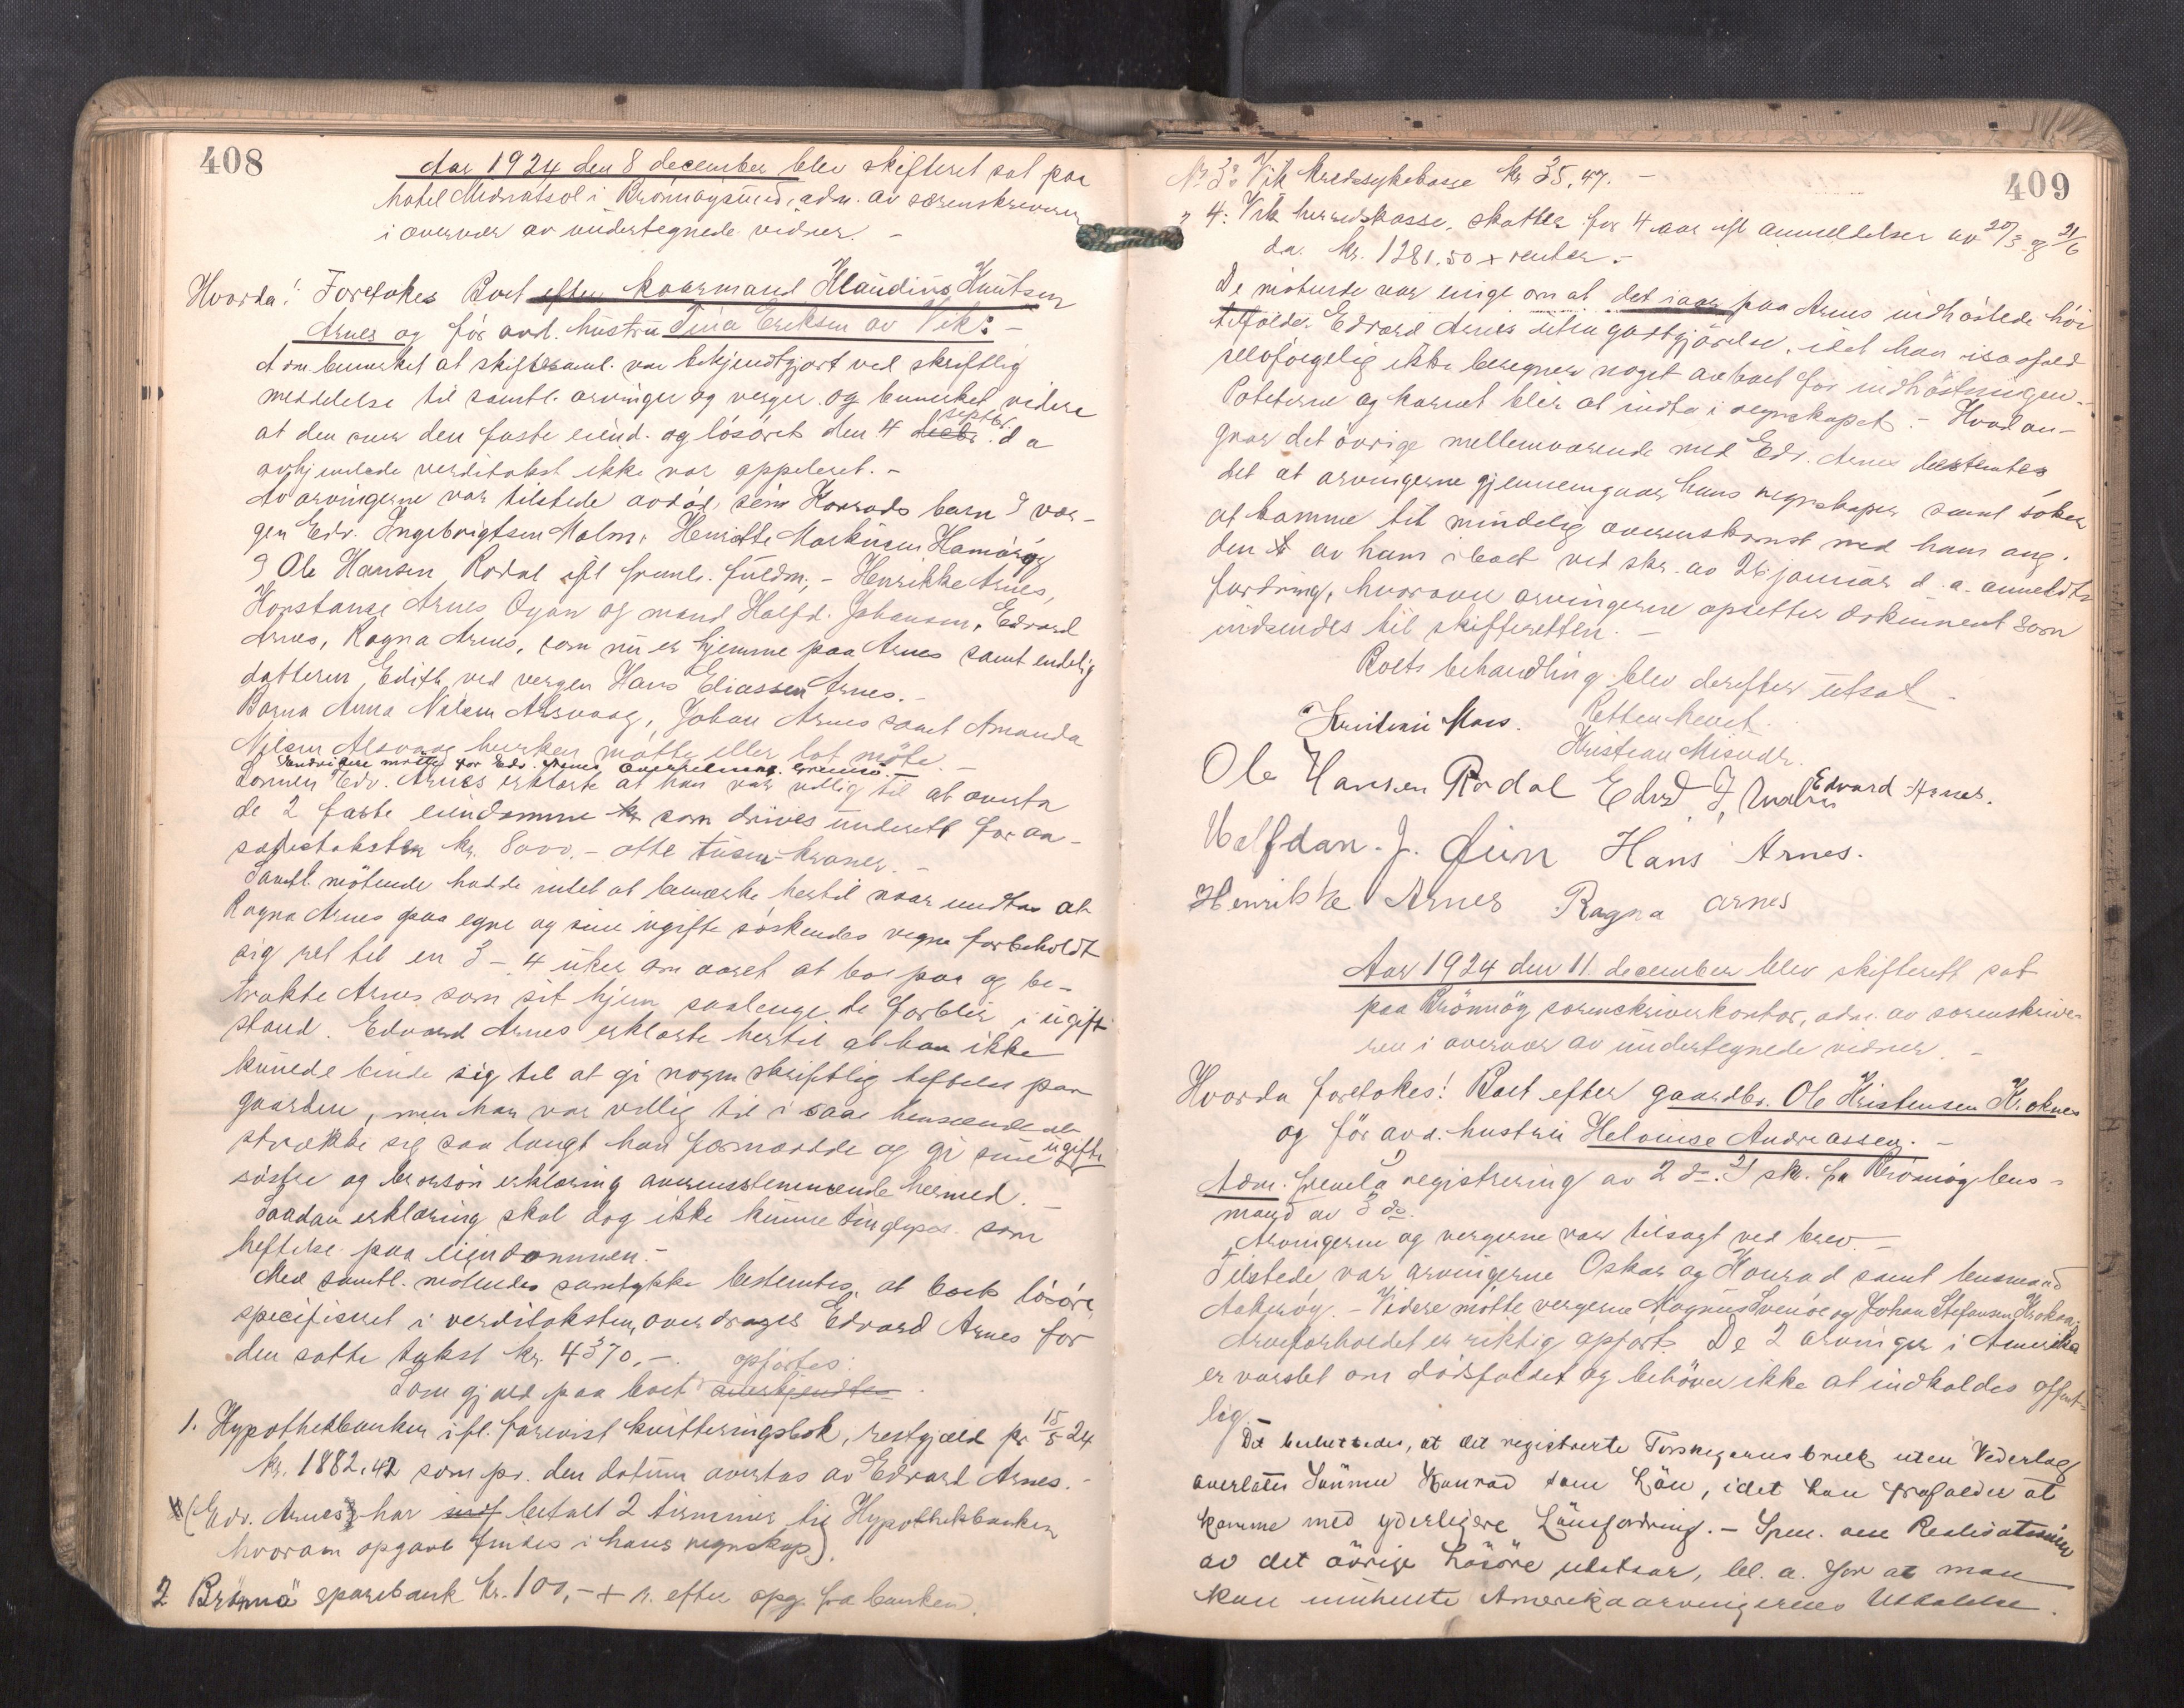 408
Aar 1924 den 8 december blev skifteret sat paa
hotel Midnatsol i Brønnøysund, adm. av sorenskriveren
i overvær av undertegnede vidner. –
Hvorda: Foretokes Boet efter kaarmand Klaudius Knutsen
Arnes og før avd. hustru Tina Eriksen av Vik: –
Adm. bemerket at skiftesaml. var bekjendtgjort ved skriftlig
meddelelse til samtl. arvinger og verger og bemerket videre
at den over den faste eiend. og løsøret den 4 septbr. d a
avhjemlede verditakst ikke var appeleret. –
Av arvingerne var tilstede avdød søn Konrads barn v ver-
gen Edv. Ingebrigtsen Malm, Henriette Markusen Hamarøy
v Ole Hansen Rødal ifl freml. fuldm, – Henrikke Arnes,
Konstanse Arnes Øyan og mand Halfd. Johansen, Edvard
Arnes, Ragna Arnes, som nu er hjemme paa Arnes samt endelig
datteren Edith ved vergen Hans Eliassen Arnes. –
Barna Anna Nilsen Alsvaag, Johan Arnes samt Amanda
Nilsen Alsvaag hverken møtte eller lot møte. –
Endvidere møtte for Edv. Arnes overrettssakf.
Sønnen Edv. Arnes erklærte at han var villig til at overta
de 2 faste eiendomme som drives underett for aa-
sætestaksten kr. 8000,– otte tusen kroner. –
Samtl. møtende hadde intet at bemerke hertil naar undtas at
Ragna Arnes paa egne og sine ugifte søskendes vegne forbeholdt
sig ret til en 3 – 4 uker om aaret at bo paa og be-
trakte Arnes som sit hjem saalenge de forblir i ugift
stand. Edvard Arnes erklærte hertil at han ikke
kunde binde sig til at gi nogen skriftlig heftelse paa
gaarden, men han var villig til i saa henseende at
strække sig saa langt han formaadde og gi sine ugifte
søstre og brorsøn erklæring overensstemmende hermed. –
Saadan erklæring skal dog ikke kunne tinglyses som
heftelse paa eiendommen. –
Med samtl. møtendes samtykke bestemtes, at boets løsøre,
specifiseret i verditaksten, overdrages Edvard Arnes for
den satte takst kr. 4370,–.
Som gjæld paa boet anerkjendtes opførtes:
1. Hypothekbanken ifl. forevist kvitteringsbok, restgjæld pr 15/5 24
kr. 1882,42 som pr. den datum overtas av Edvard Arnes. –
(Edv. Arnes har betalt 2 terminer til Hypothekbanken
hvorom opgave findes i hans regnskap).
2 Brønnø sparebank kr. 100,– + r. efter opg. fra banken.
409
No 3: Vik kredssykekasse kr 35,47. –
" 4: Vik herredskasse, skatter for 4 aar ifl anmeldelser av 20/3 og 21/6
da. kr. 1281.50 + renter. –
De møtende var enige om at det iaar paa Arnes indhøstede høi
tilfalder Edvard Arnes uten godtgjørelse, idet han isaafald
selvfølgelig ikke beregner noget av boet for indhøstningen. –
Poteterne og kornet blir at indta i regnskapet. – Hvad an-
gaar det øvrige mellemværende med Edv. Arnes bestemtes
det at arvingerne gjennemgaar hans regnskaper samt søker
at komme til mindelig overenskomst med ham ang.
den av ham i boet ved skr. av 26 januar d. a. anmeldte
fordring, hvorover arvingerne opsetter dokument som
indsendes til skifteretten. –
Boets behandling blev derefter utsat –
Retten hevet.
Kristian Misvær.
Ole Hansen Rødal Edvard Arnes.
Halfdan. J. Øien Hans Arnes.
Henrikke Arnes Ragna Arnes
Aar 1924 den 11. december blev skifterett sat
paa Brønnøy sorenskriverkontor, adm. av sorenskrive-
ren i overvær av undertegnede vidner. –
Hvorda foretokes: Boet efter gaardbr. Ole Kristensen Kroknes
og før avd. hustru Helouise Andreassen. –
Adm. fremla registrering av 2 ds. v skr. fra Brønnøy lens-
mand av 3 ds.
Arvingerne og vergerne var tilsagt ved brev. –
Tilstede var arvingerne Oskar og Konrad samt lensmand
Aakerøy. – Videre møtte vergerne Magnus Svenøe og Johan Stefansen Kroknes.
Arveforholdet er riktig opført. De 2 arvinger i Amerika
er varslet om dødsfaldet og behøver ikke at indkaldes offent-
lig. –
Det besluttedes, at det registrerte Torskegarnsbruk uten Vederlag
overlates Sønnen Konrad som Løn, idet han frafalder at
komme med yderligere Lønsfordring. – Spm. om Realisationen
av det øvrige Løsøre utstaar, bl. a. for at man
kan indhente Amerikaarvingernes Uttalelse.